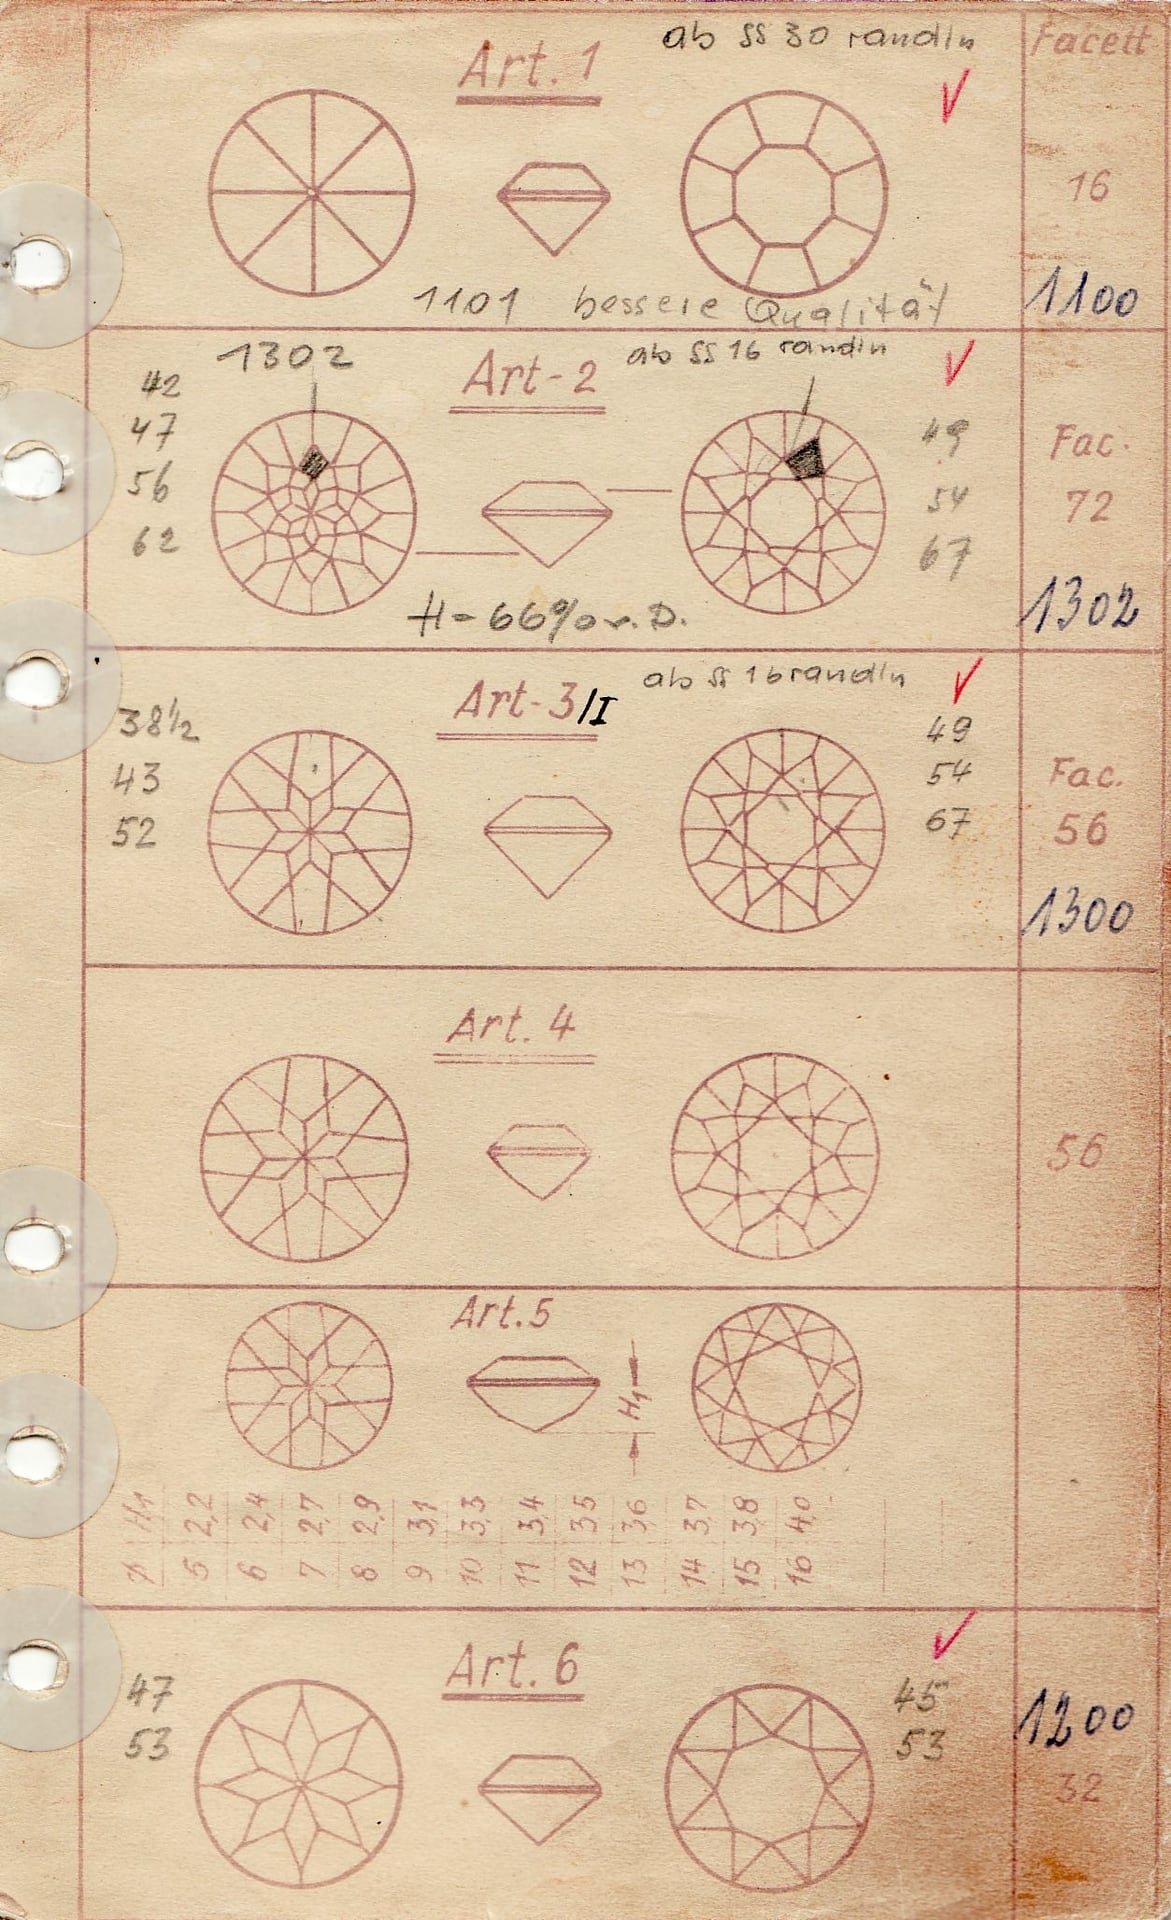 ab ss 30 randin
Facett
Art. 1
16
1101 bessere Qualität
1100
1302
Art-2
ab ss 16 randin
42
47
56
62
49
54
67
Fac.
72
H = 66% v. D.
1302
Art-3/I
ab ss 16 randin
38½
43
52
49
54
67
Fac.
56
1300
Art. 4
56
Art. 5
H₁
H₁ 2,2 2,4 2,7 2,9 3,1 3,3 3,4 3,5 3,6 3,7 3,8 4,0
5 6 7 8 9 10 11 12 13 14 15 16
Art. 6
47
53
45
53
1200
32